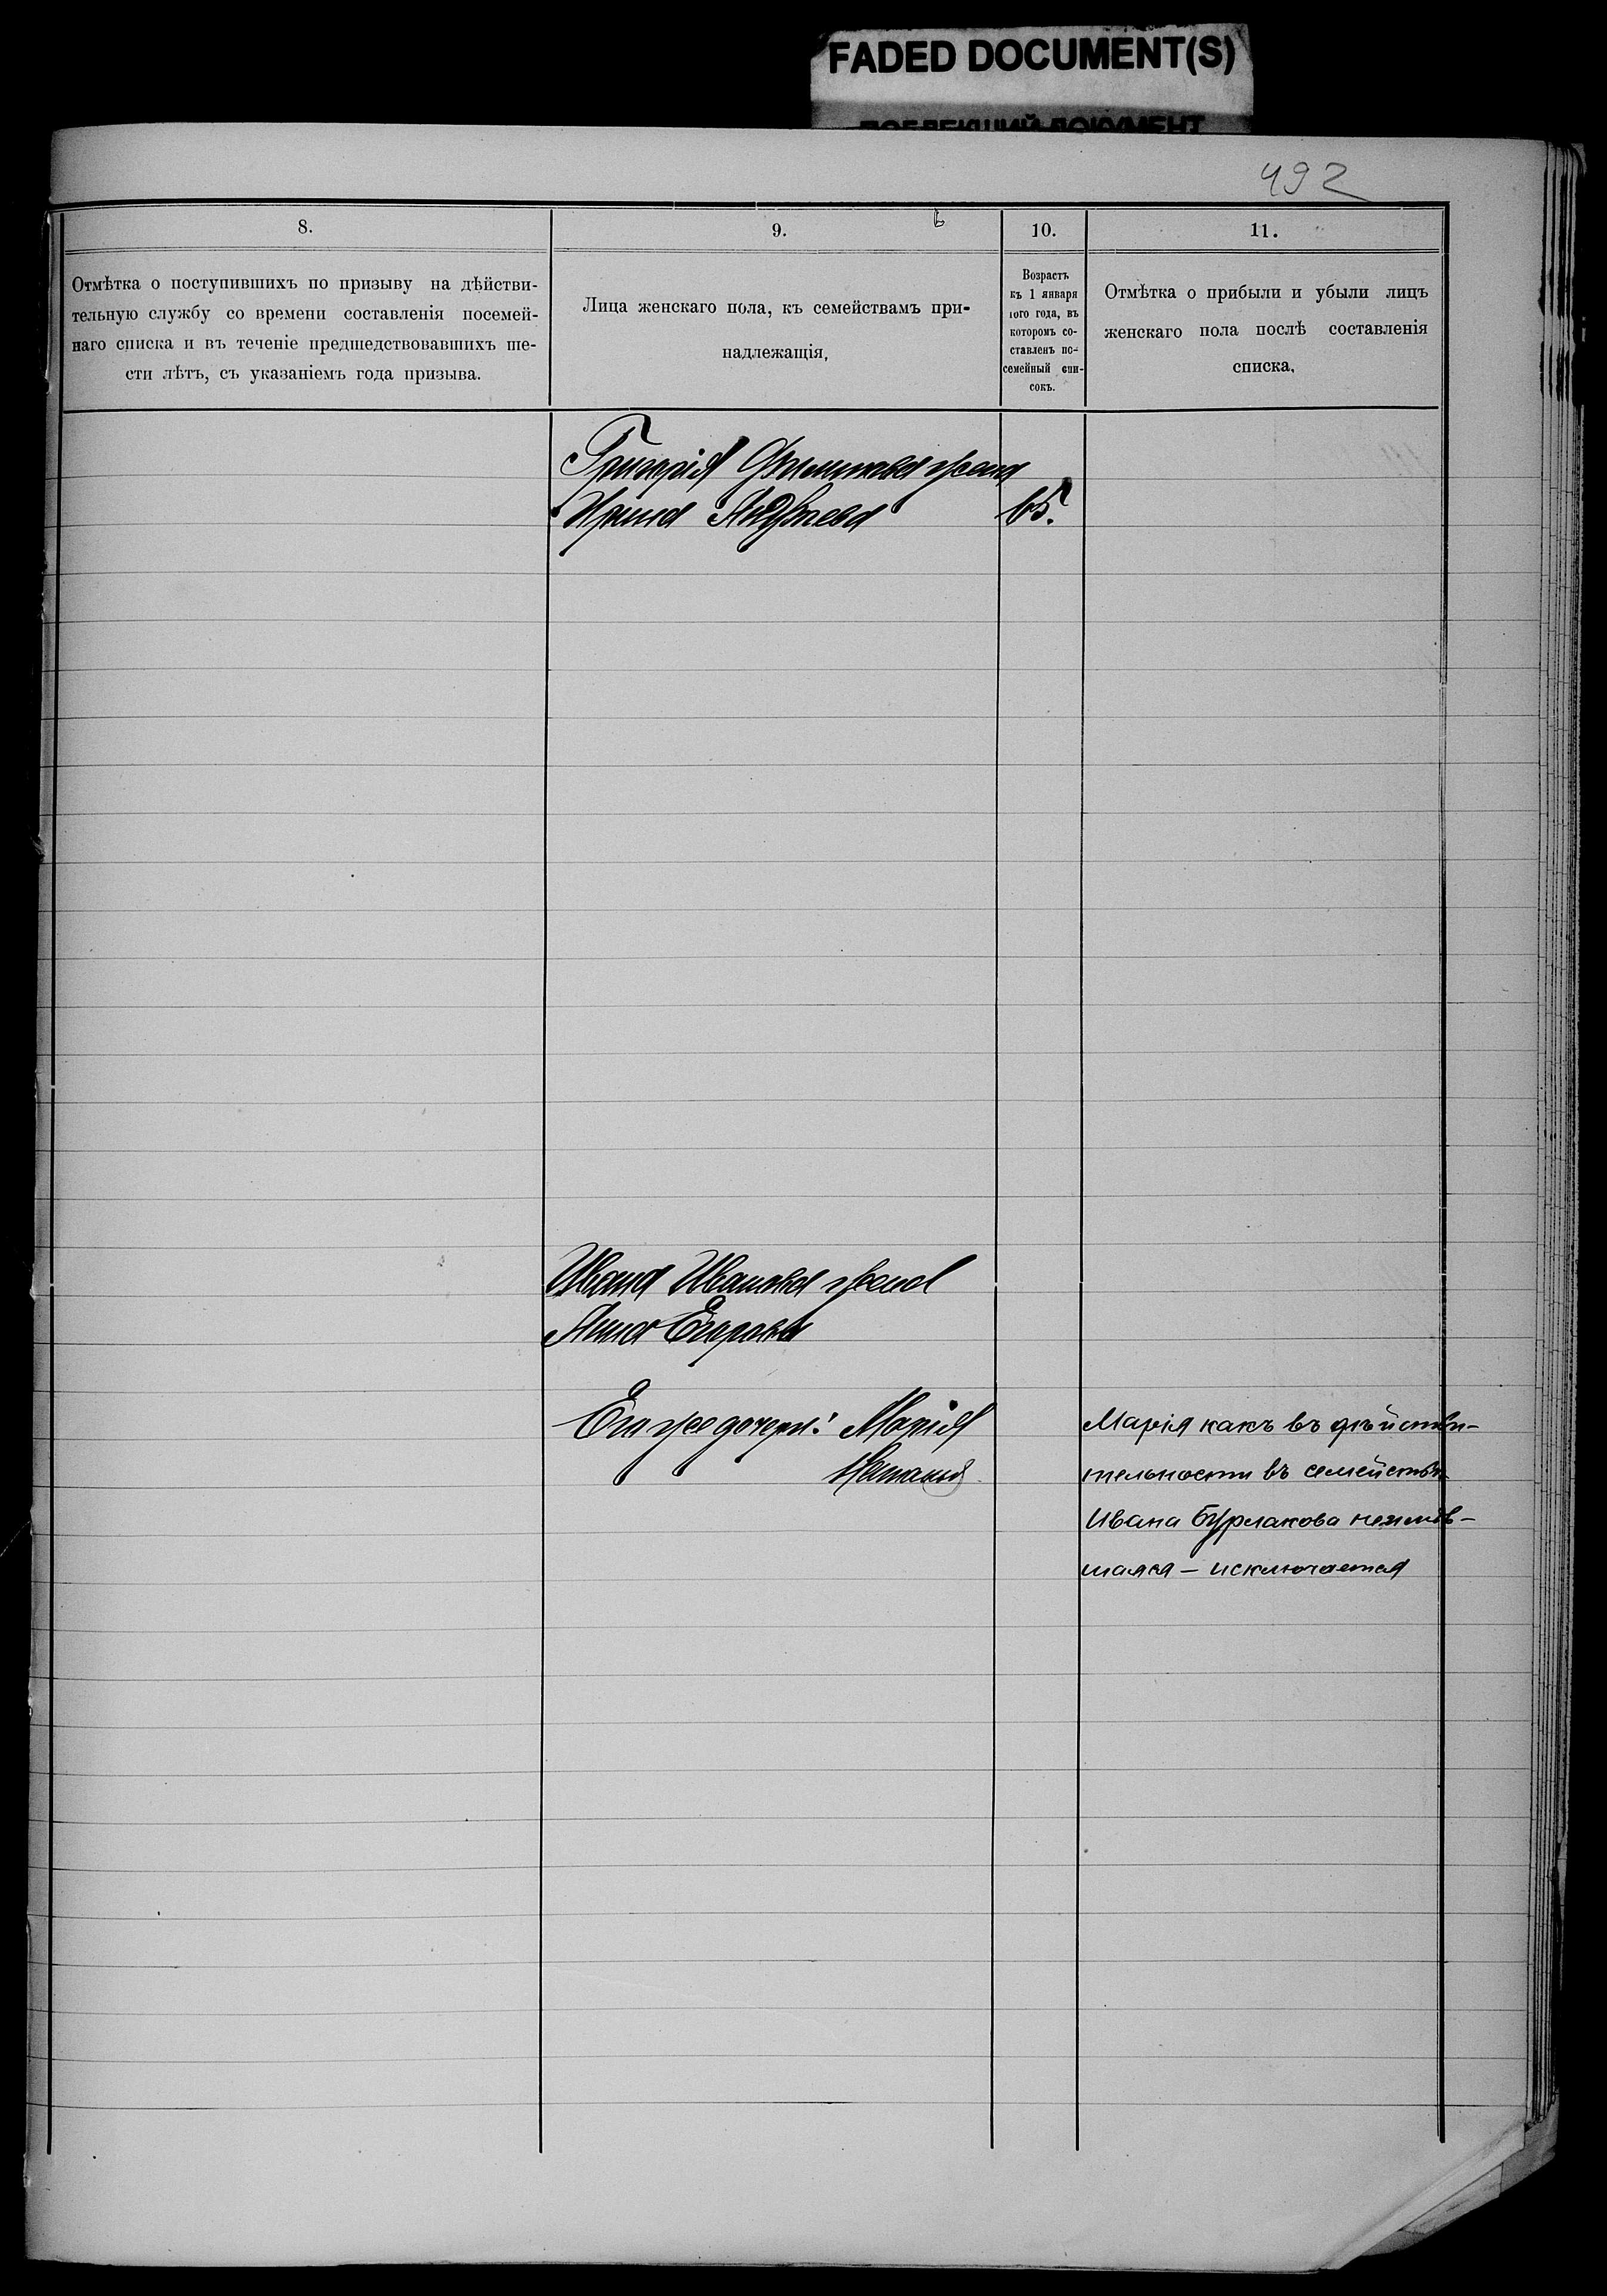 FADED DOCUMENT(S)
ПОБЛЕКШИЙ ДОКУМЕНТ
492
8.
9.
10.
11.
Отмѣтка о поступившихъ по призыву на дѣйстви-
тельную службу со времени составленія посемей-
наго списка и въ теченіе предшедствовавшихъ ше-
сти лѣтъ, съ указаніемъ года призыва.
Лица женскаго пола, къ семействамъ при-
надлежащія,
Возрастъ
къ 1 января
того года, въ
которомъ со-
ставленъ по-
семейный спи-
сокъ.
Отмѣтка о прибыли и убыли лицъ
женскаго пола послѣ составленія
списка.
Григорія Филипова жена
Ирина Андреева 65.
Ивана Иванова жена
Анна Егорова
Ея же дочери: Марія
Наталья
Марія какъ въ дѣйстви-
тельности въ семействѣ
Ивана Бурлакова неимѣв-
шаяся - исключается